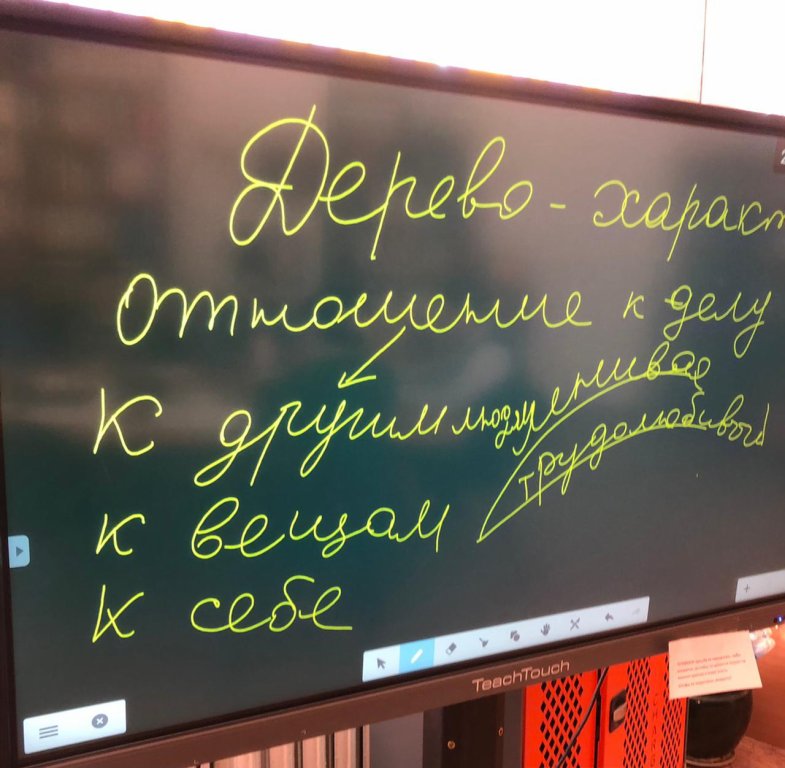 Дерево - характ
отношение к делу
к другим людям
ленивая
трудолюбивый
к вещам
к себе
TeachTouch